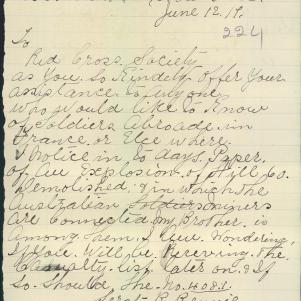 June 12.19.
224
To
Red Cross Society
as You So Kindely Offer Your
assistance to any one
who would like to Know
of Soldiers Abroade in
France or Else where.
I Notice in to days Paper.
of An Explosion of Hill 60.
Demolished; & in which the
Australian Soldier miners
are Connected my Brother is
Among them. I Am Wondering,
if You Will be Receving the
Casualty list later on. & If
So Should, the No. 4083.